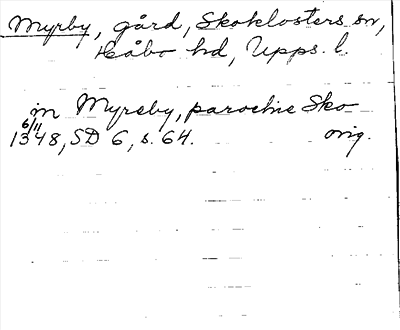 Myrby, gård, Skoklosters sn,
Håbo hd, Upps. l.
in Myreby, parochie Sko
6/11 1348, SD 6, s. 64. orig.